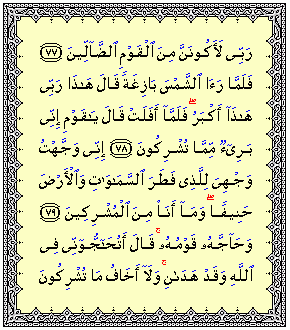 رَبِّى لَأَكُونَنَّ مِنَ ٱلْقَوْمِ ٱلضَّآلِّينَ ٧٧
فَلَمَّا رَءَا ٱلشَّمْسَ بَازِغَةً قَالَ هَٰذَا رَبِّى
هَٰذَآ أَكْبَرُ ۖ فَلَمَّآ أَفَلَتْ قَالَ يَٰقَوْمِ إِنِّى
بَرِىٓءٌ مِّمَّا تُشْرِكُونَ ٧٨ إِنِّى وَجَّهْتُ
وَجْهِىَ لِلَّذِى فَطَرَ ٱلسَّمَٰوَٰتِ وَٱلْأَرْضَ
حَنِيفًا ۖ وَمَآ أَنَا۠ مِنَ ٱلْمُشْرِكِينَ ٧٩
وَحَآجَّهُۥ قَوْمُهُۥ ۚ قَالَ أَتُحَٰٓجُّوٓنِّى فِى
ٱللَّهِ وَقَدْ هَدَىٰنِ ۚ وَلَآ أَخَافُ مَا تُشْرِكُونَ